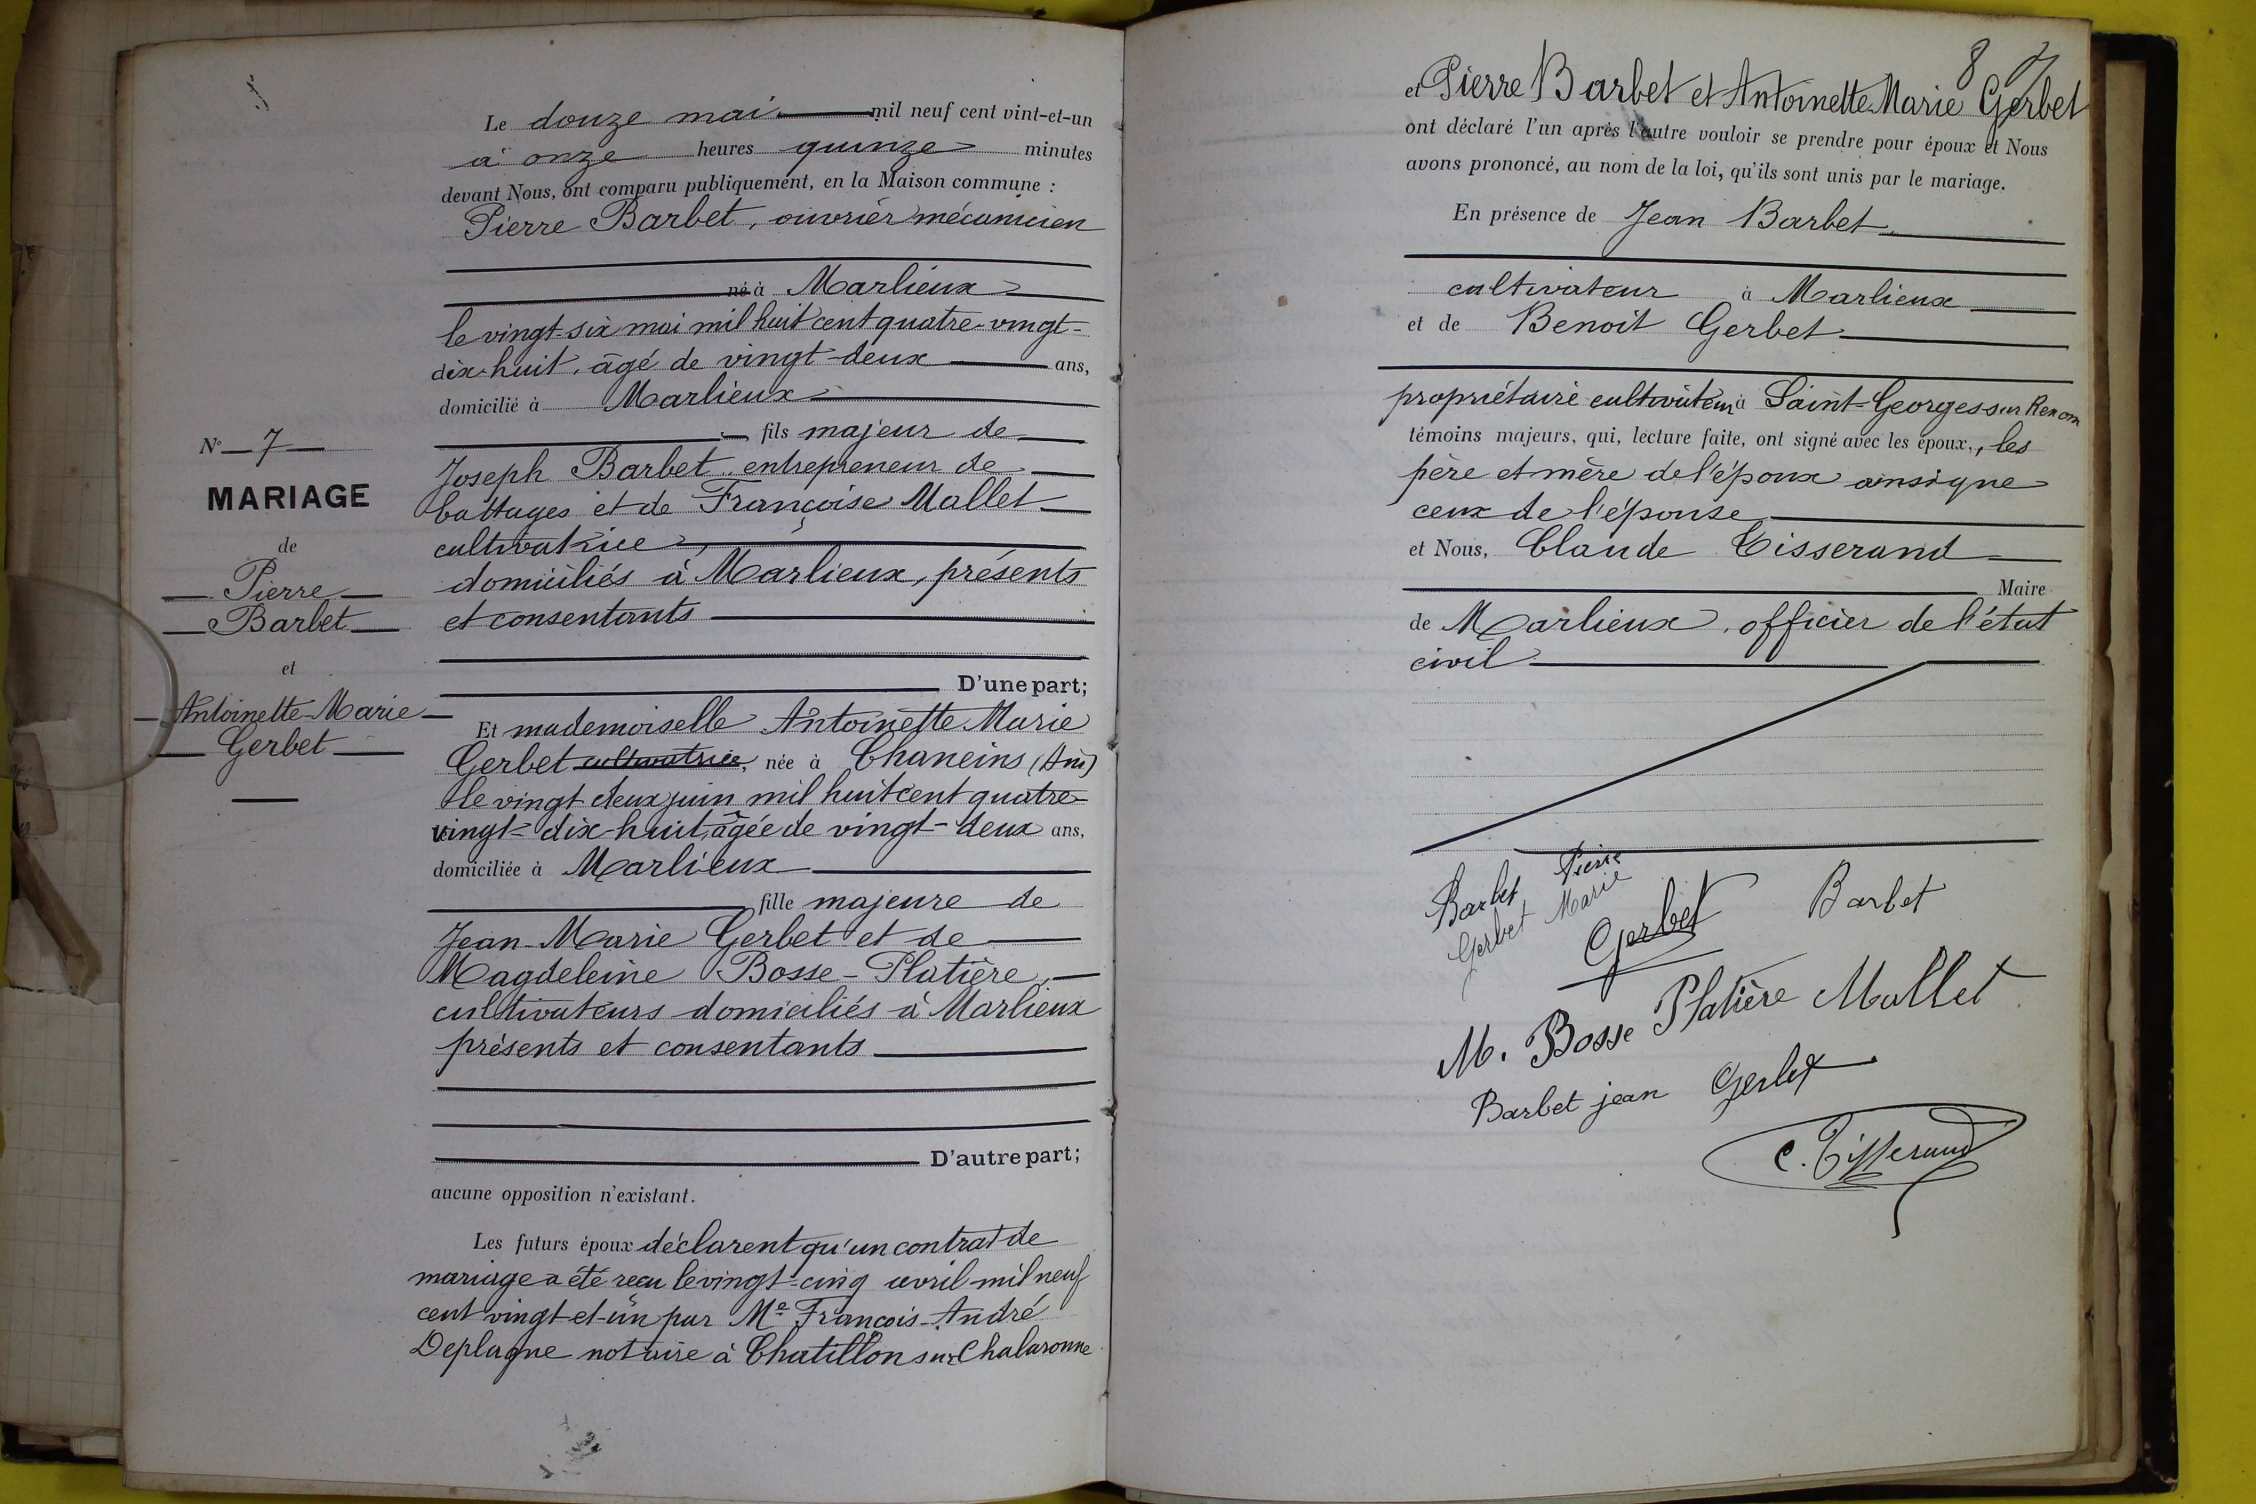 Le douze mai mil neuf cent vint-et-un
à onze heures quinze minutes
devant Nous, ont comparu publiquement, en la Maison commune :
Pierre Barbet, ouvrier mécanicien
né à Marlieux
le vingt-six mai mil huit cent quatre-vingt-
dix-huit, âgé de vingt-deux ans,
domicilié à Marlieux
fils majeur de
Joseph Barbet entrepreneur de
battages et de Françoise Mallet
cultivatrice,
domiciliés à Marlieux, présents
et consentants
D'une part;
N° 7
MARIAGE
de
Pierre
Barbet
et
Antoinette-Marie
Gerbet
Et mademoiselle Antoinette Marie
Gerbet cultivatrice, née à Chaneins (Ain)
le vingt deux juin mil huit cent quatre-
vingt-dix-huit, âgée de vingt-deux ans,
domiciliée à Marlieux
fille majeure de
Jean-Marie Gerbet et de
Magdeleine Bosse-Platière,
cultivateurs domiciliés à Marlieux
présents et consentants
D'autre part;
aucune opposition n'existant.
Les futurs époux déclarent qu'un contrat de
mariage a été reçu le vingt-cinq avril mil neuf
cent vingt-et-un par Me François-André
Deplagne notaire à Chatillon sur Chalaronne
8
et Pierre Barbet et Antoinette Marie Gerbet
ont déclaré l'un après l'autre vouloir se prendre pour époux et Nous
avons prononcé, au nom de la loi, qu'ils sont unis par le mariage.
En présence de Jean Barbet
cultivateur à Marlieux
et de Benoit Gerbet
propriétaire cultivateur à Saint-Georges sur Renom
témoins majeurs, qui, lecture faite, ont signé avec les époux, les
père et mère de l'époux ainsi que
ceux de l'épouse
et Nous, Claude Tisserand
Maire
de Marlieux, officier de l'état
civil
Barbet Pierre
Gerbet Marie
Gerbet
Barbet
M. Bosse Platière Mallet
Barbet jean Gerbet
C. Tisserand